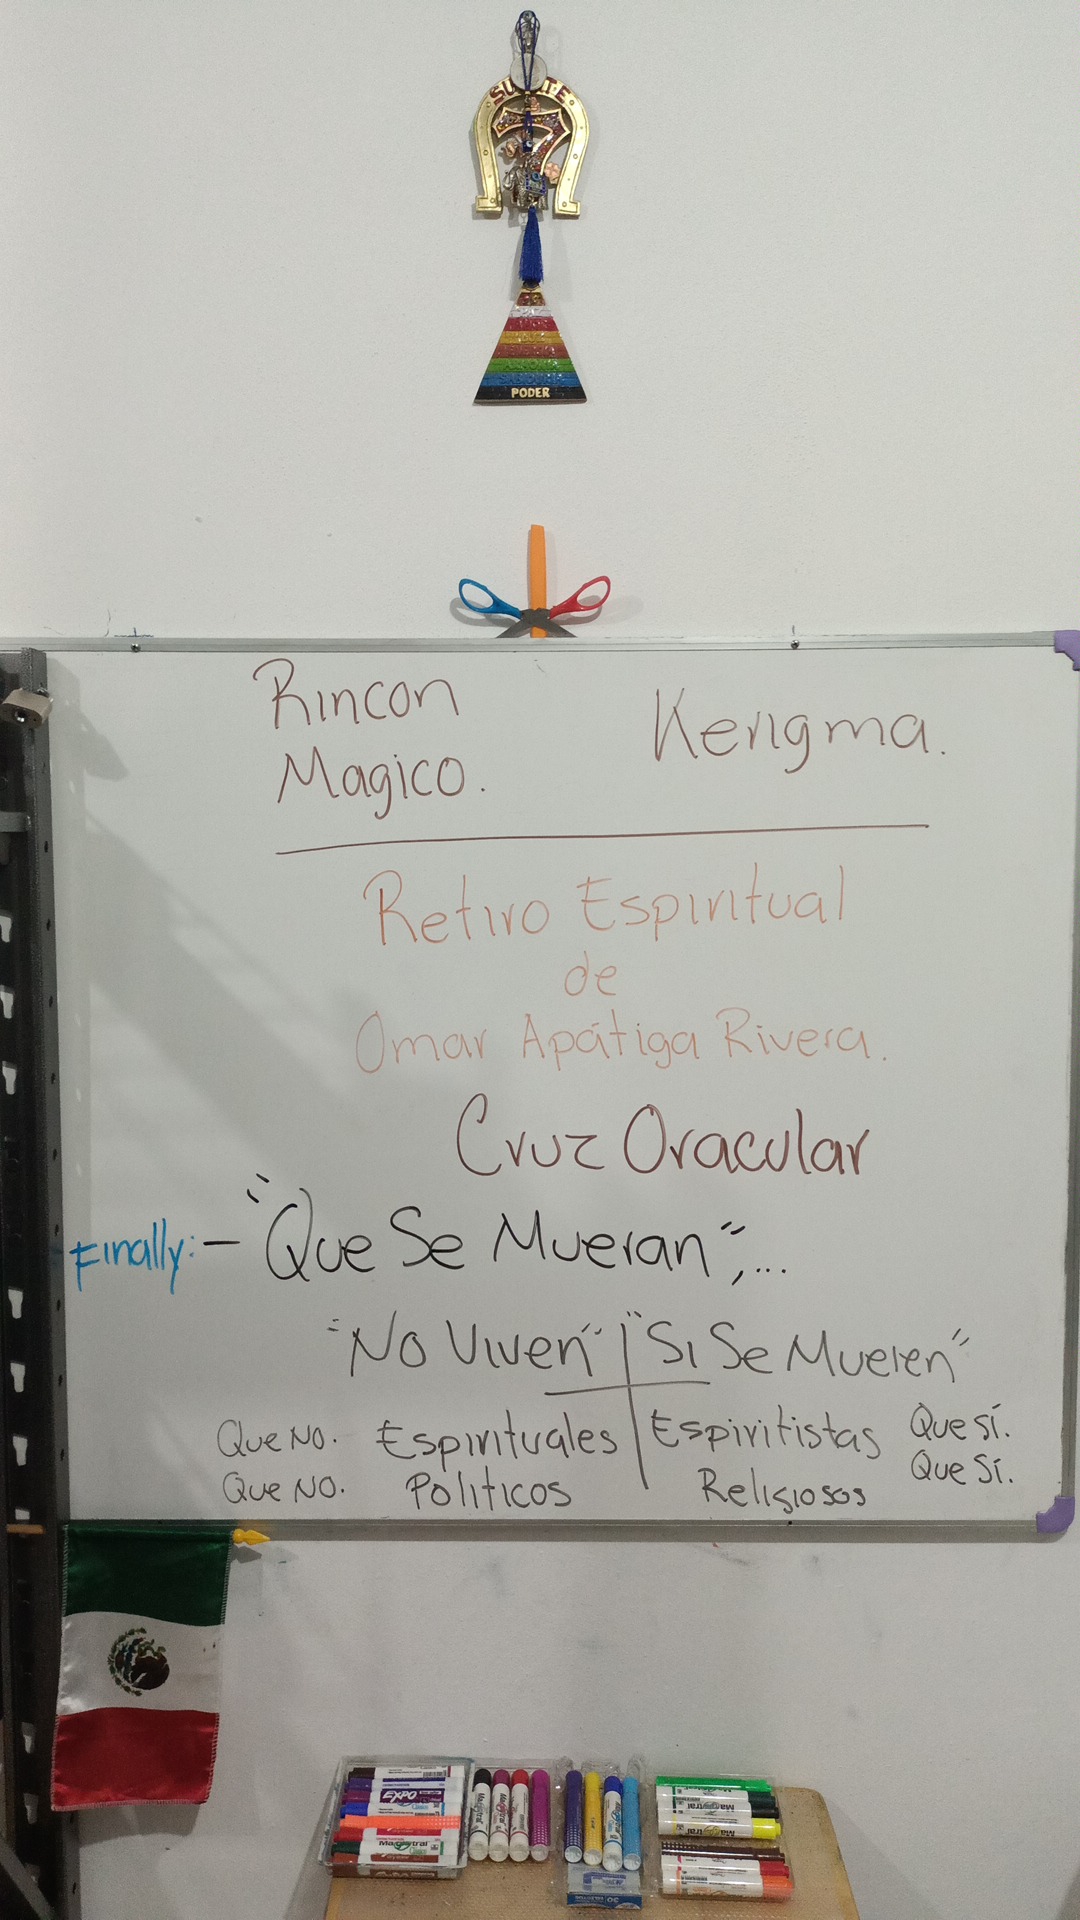 PODER
Rincon
Magico.
Kerigma.
Retiro Espiritual
de
Omar Apátiga Rivera.
Cruz Oracular
Finally:- "Que Se Mueran";...
"No Viven" | "Si Se Mueren"
Que No. Espirituales | Espiritistas Que Sí.
Que No. Politicos Religiosos Que Sí.
EXPO
Magistral
Magistral
Magistral